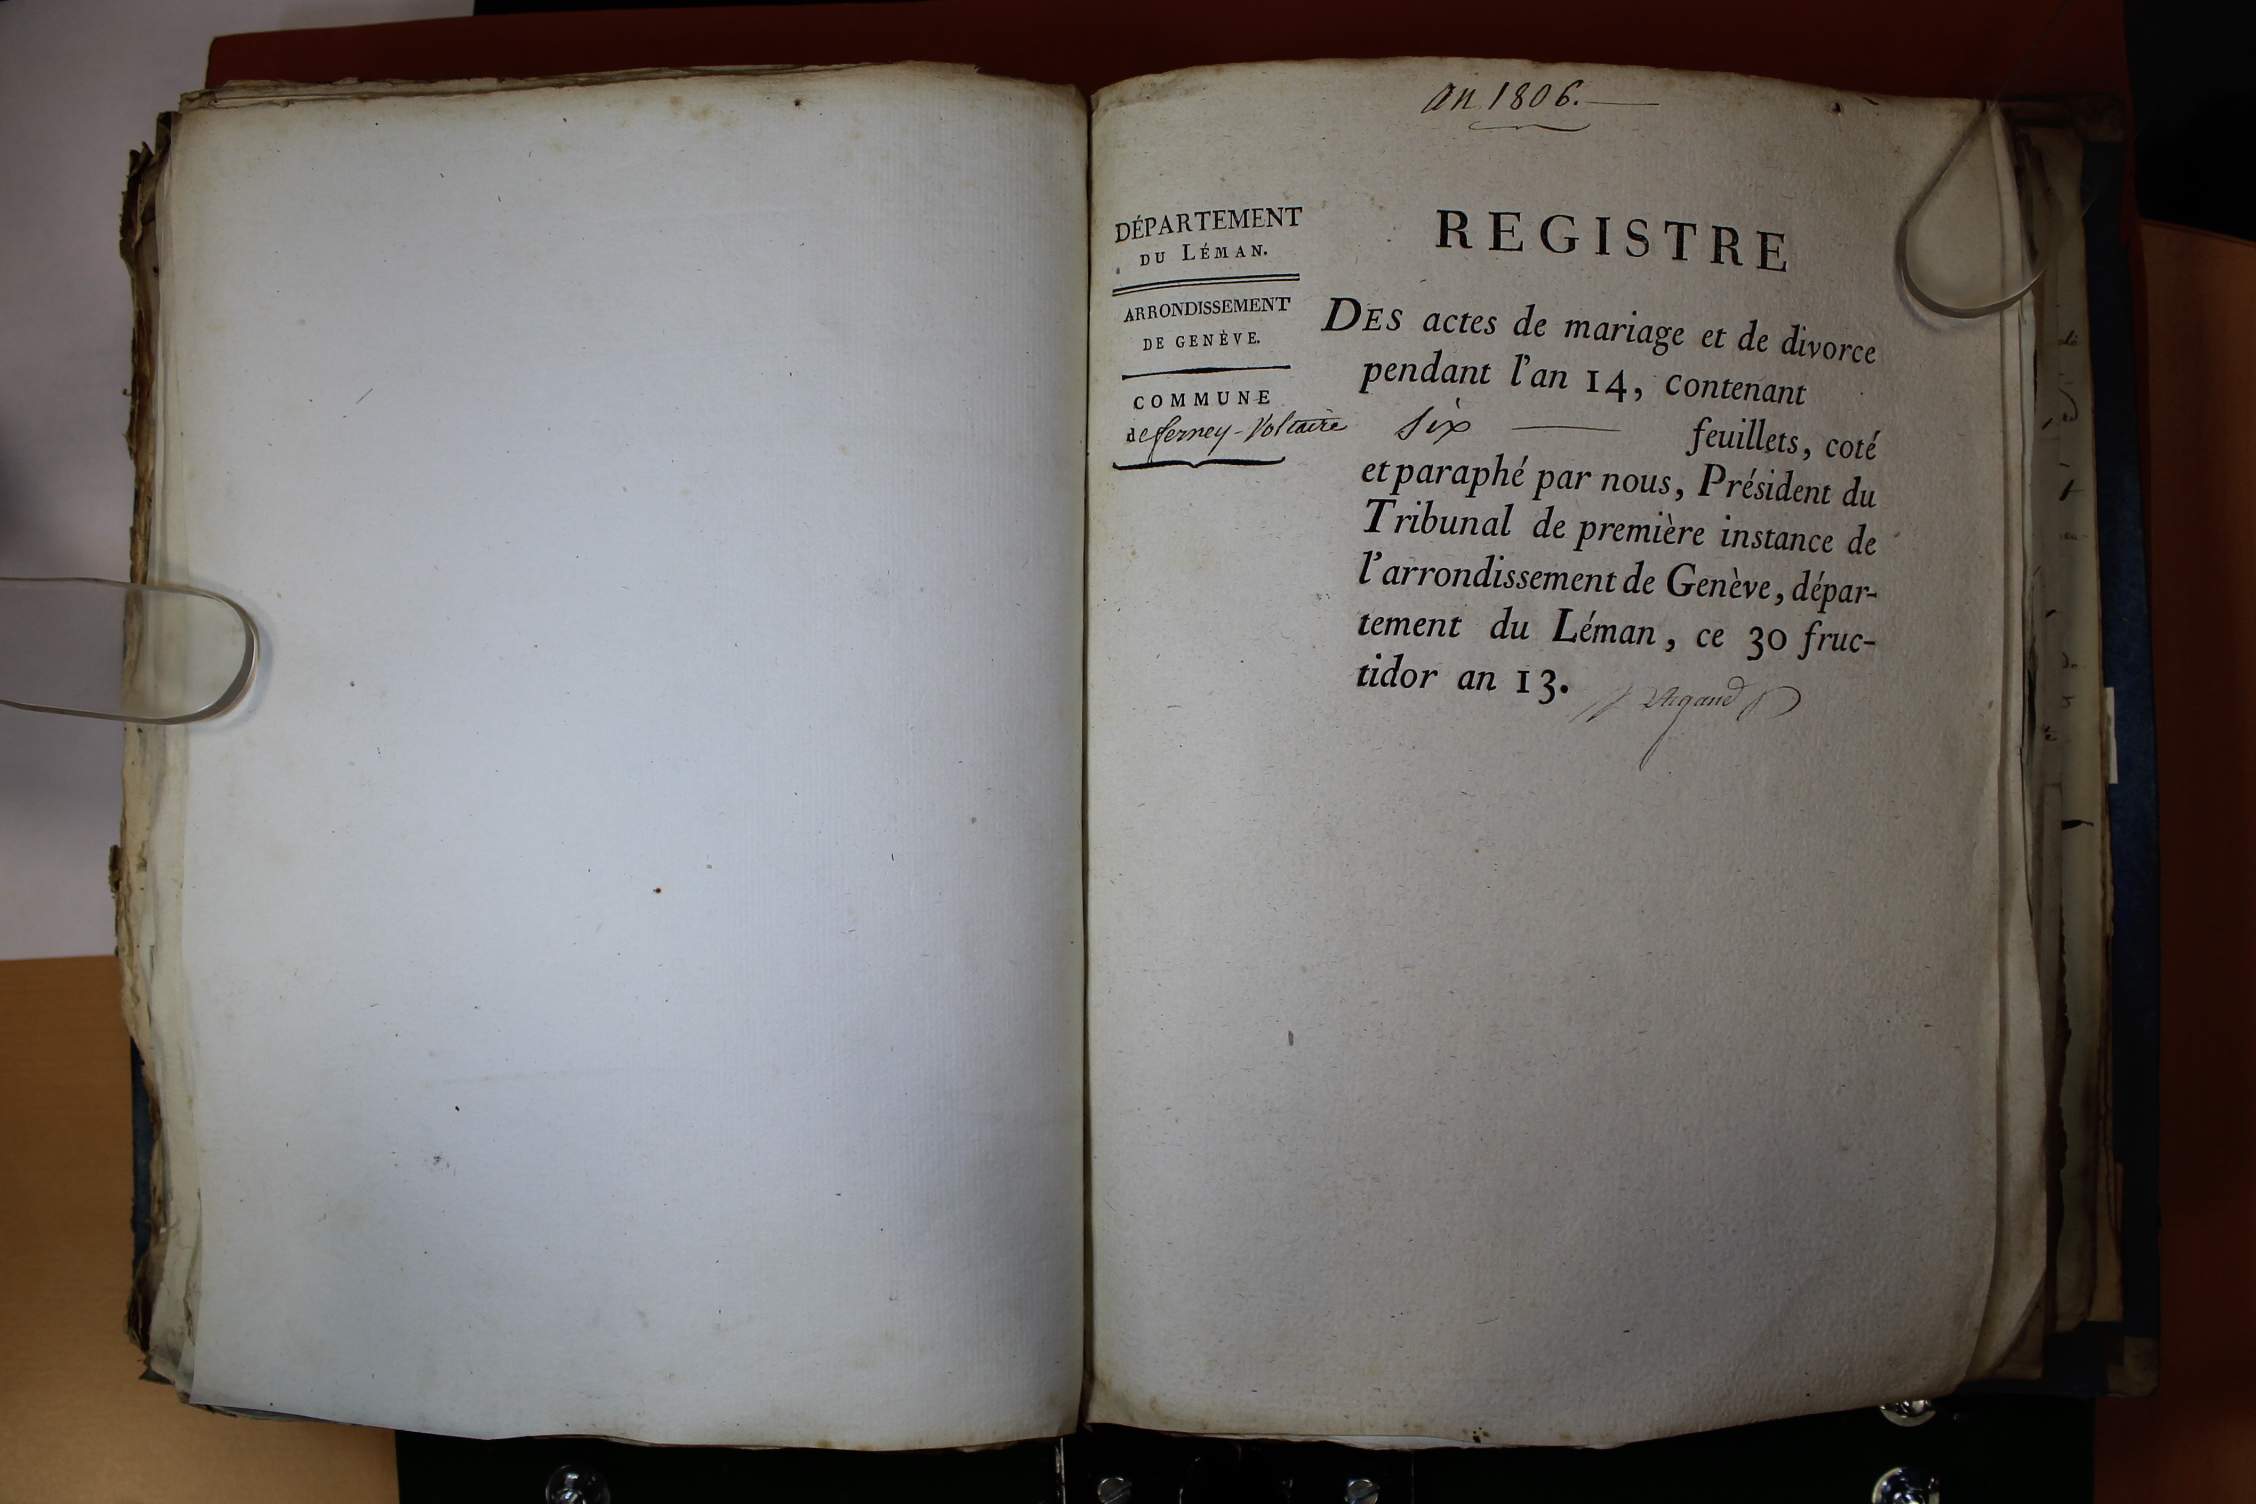 an 1806.
DÉPARTEMENT
DU LÉMAN.
ARRONDISSEMENT
DE GENÈVE.
COMMUNE
de ferney-Voltaire
REGISTRE
DES actes de mariage et de divorce
pendant l'an 14, contenant
six feuillets, coté
et paraphé par nous, Président du
Tribunal de première instance de
l'arrondissement de Genève, dépar-
tement du Léman, ce 30 fruc-
tidor an 13.